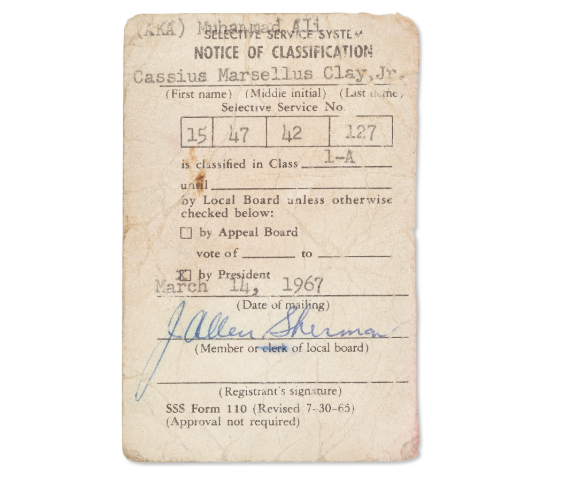 (AKA) Muhammad Ali
SELECTIVE SERVICE SYSTEM
NOTICE OF CLASSIFICATION
Cassius Marsellus Clay,Jr.
(First name) (Middle initial) (Last name)
Selective Service No.
15 47 42 127
is classified in Class 1-A
until
by Local Board unless otherwise
checked below:
☐ by Appeal Board
vote of ______ to ______
☒ by President
March 14, 1967
(Date of mailing)
J Allen Sherman
(Member or clerk of local board)
(Registrant's signature)
SSS Form 110 (Revised 7-30-65)
(Approval not required)